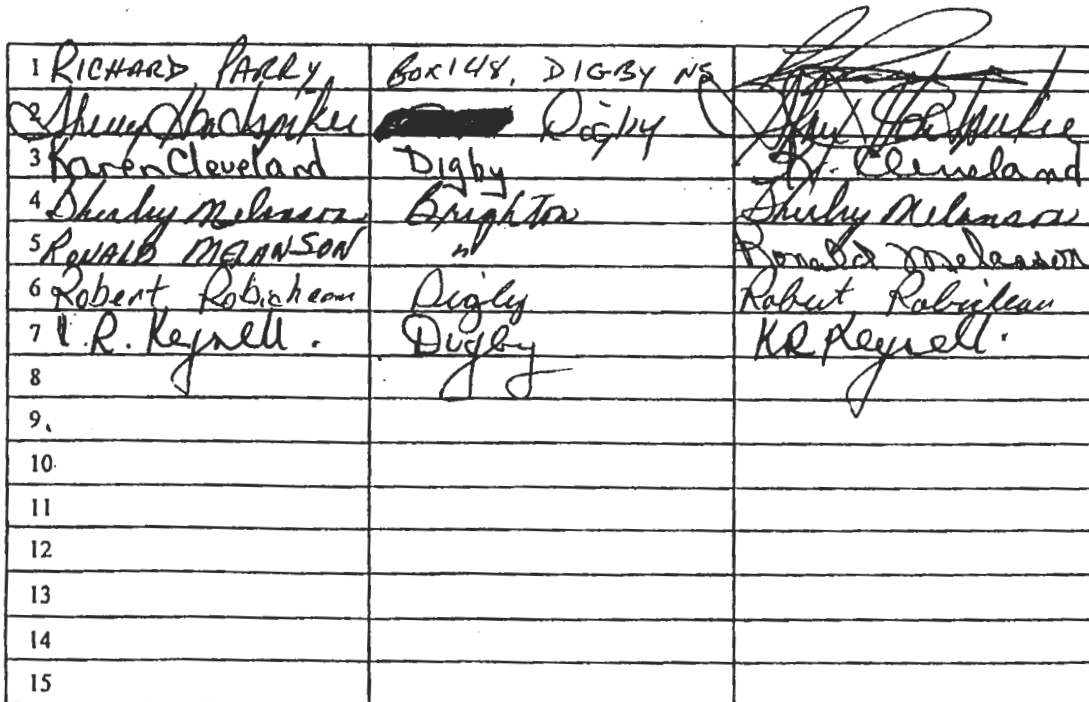 1 RICHARD PARRY BOX 148, DIGBY NS
2 Sherry Handspiker Digby
3 Karen Cleveland Digby K. Cleveland
4 Shirley Melanson Brighton Shirley Melanson
5 RONALD MELANSON " Ronald Melanson
6 Robert Robicheau Digby Robert Robicheau
7 K.R. Keynell. Digby KR Keynell.
8
9.
10
11
12
13
14
15